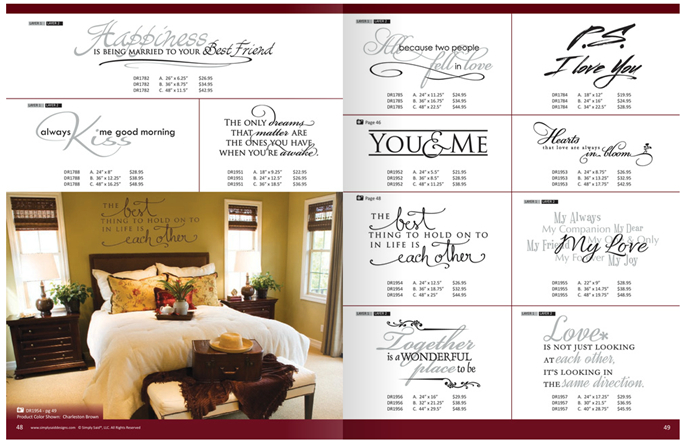 LAYER 1 LAYER 2
Happiness
IS BEING MARRIED TO YOUR Best Friend
DR1782 A. 26" x 6.25" $26.95
DR1782 B. 36" x 8.75" $34.95
DR1782 C. 48" x 11.5" $42.95
LAYER 1 LAYER 2
always Kiss me good morning
DR1788 A. 24" x 8" $28.95
DR1788 B. 36" x 12.25" $38.95
DR1788 C. 48" x 16.25" $48.95
THE ONLY dreams
THAT matter ARE
THE ONES YOU HAVE
WHEN YOU'RE awake.
DR1951 A. 18" x 9.25" $22.95
DR1951 B. 24" x 12.5" $26.95
DR1951 C. 36" x 18.5" $36.95
THE best
THING TO HOLD ON TO
IN LIFE IS
each other
DR1954 - pg 49
Product Color Shown: Charleston Brown
48 www.simplysaiddesigns.com © Simply Said®, LLC. All Rights Reserved
LAYER 1 LAYER 2
All because two people
fell in love
DR1785 A. 24" x 11.25" $24.95
DR1785 B. 36" x 16.75" $34.95
DR1785 C. 48" x 22.5" $44.95
P.S.
I love You
DR1784 A. 18" x 12" $19.95
DR1784 B. 24" x 16" $24.95
DR1784 C. 34" x 22.5" $28.95
Page 46
YOU & ME
DR1952 A. 24" x 5.5" $21.95
DR1952 B. 36" x 8.5" $28.95
DR1952 C. 48" x 11.25" $38.95
Hearts
that love are always
in bloom
DR1953 A. 24" x 8.75" $26.95
DR1953 B. 36" x 13.25" $32.95
DR1953 C. 48" x 17.75" $42.95
Page 48
THE best
THING TO HOLD ON TO
IN LIFE IS
each other
DR1954 A. 24" x 12.5" $26.95
DR1954 B. 36" x 18.75" $32.95
DR1954 C. 48" x 25" $44.95
LAYER 1 LAYER 2
My Always
My Companion My Dear
My Friend My Love Only
My Forever My Joy
DR1955 A. 22" x 9" $28.95
DR1955 B. 36" x 14.75" $38.95
DR1955 C. 48" x 19.75" $48.95
LAYER 1 LAYER 2
Together
is a WONDERFUL
place to be
DR1956 A. 24" x 16" $29.95
DR1956 B. 32" x 21.25" $38.95
DR1956 C. 44" x 29.5" $48.95
LAYER 1 LAYER 2
Love
IS NOT JUST LOOKING
AT each other,
IT'S LOOKING IN
THE same direction.
DR1957 A. 24" x 17.25" $29.95
DR1957 B. 30" x 21.5" $36.95
DR1957 C. 40" x 28.75" $45.95
49